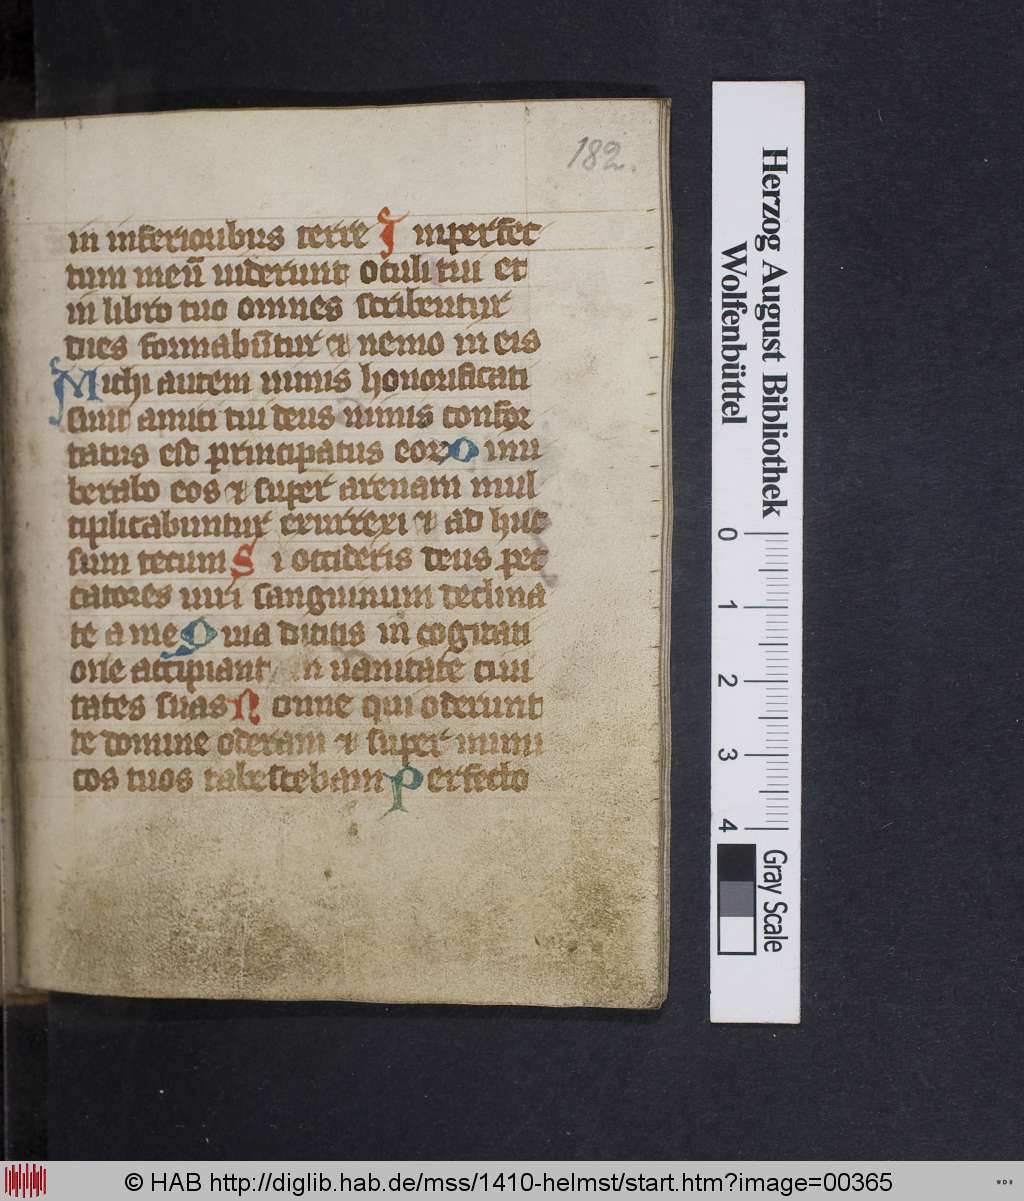 182.
in inferioribus terre Inperfec
tum meū uiderunt oculi tui et
in libro tuo omnes scribentur
dies formabūtur ⁊ nemo in eis
Michi autem nimis honorificati
sunt amici tui deus nimis confor
tatus est principatus eoꝝ Dinu
merabo eos ⁊ super arenam mul
tiplicabuntur exurrexi ⁊ ad huc
sum tecum Si occideris deus pec
catores uiri sanguinum declina
te a me Quia dicitis in cogitati
one accipiant in uanitate ciui
tates suas Nonne qui oderunt
te domine oderam ⁊ super inimi
cos tuos tabescebam Perfecto
Herzog August Bibliothek
Wolfenbüttel
0 1 2 3 4
Gray Scale
© HAB http://diglib.hab.de/mss/1410-helmst/start.htm?image=00365